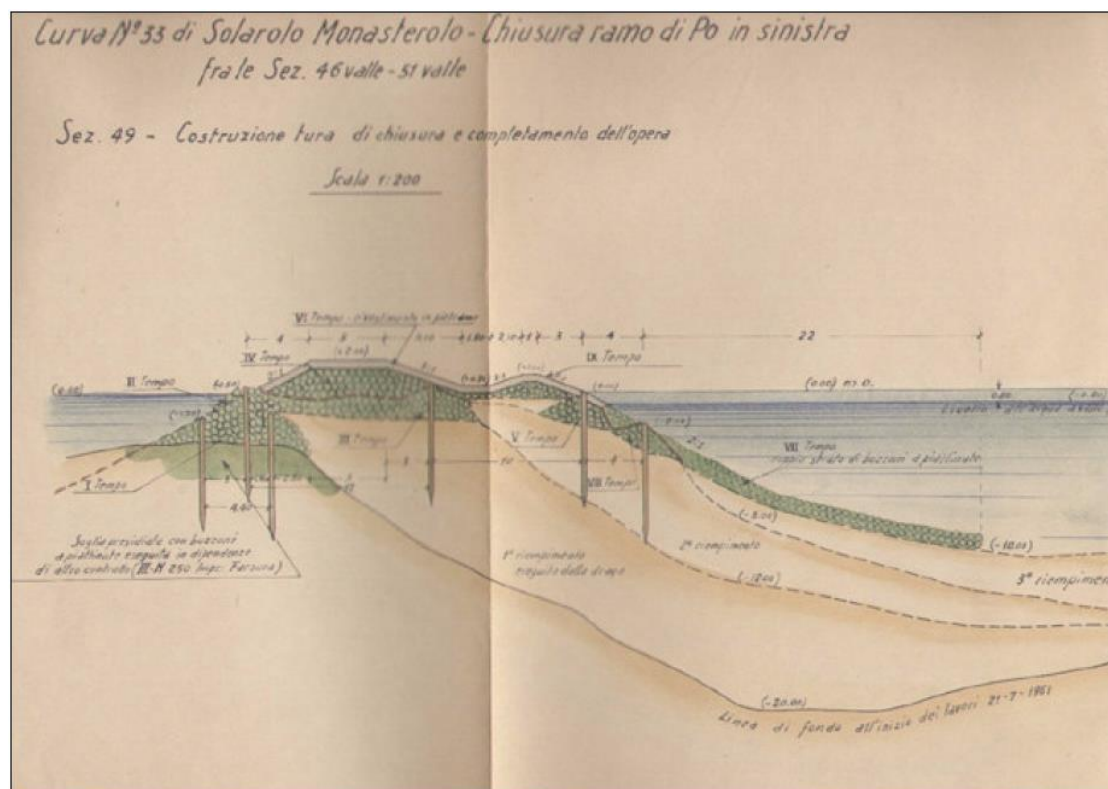 Curva Nº 33 di Solarolo Monasterolo - Chiusura ramo di Po in sinistra
fra le Sez. 46 valle - 51 valle
Sez. 49 - Costruzione tura di chiusura e completamento dell'opera
Scala 1:200
VI Tempo - rivestimento in pietrame
4
3
4
22
IV Tempo
(+2.00)
IX Tempo
II Tempo
(0.00)
(0.00) m.o.
0.80
Livello
III Tempo
V Tempo
VII Tempo
doppio strato di buzzoni a pietrame
I Tempo
10
VIII Tempo
4.40
(-8.00)
(-10.00)
Soglia presidiata con buzzoni
eseguita in dipendenza
di altro contratto (III-N 250 Impr. Farsura)
1º riempimento
eseguito dalla draga
2º riempimento
(-12.00)
3º riempimen
(-20.00)
Linea di fondo all'inizio dei lavori 21-7-1961